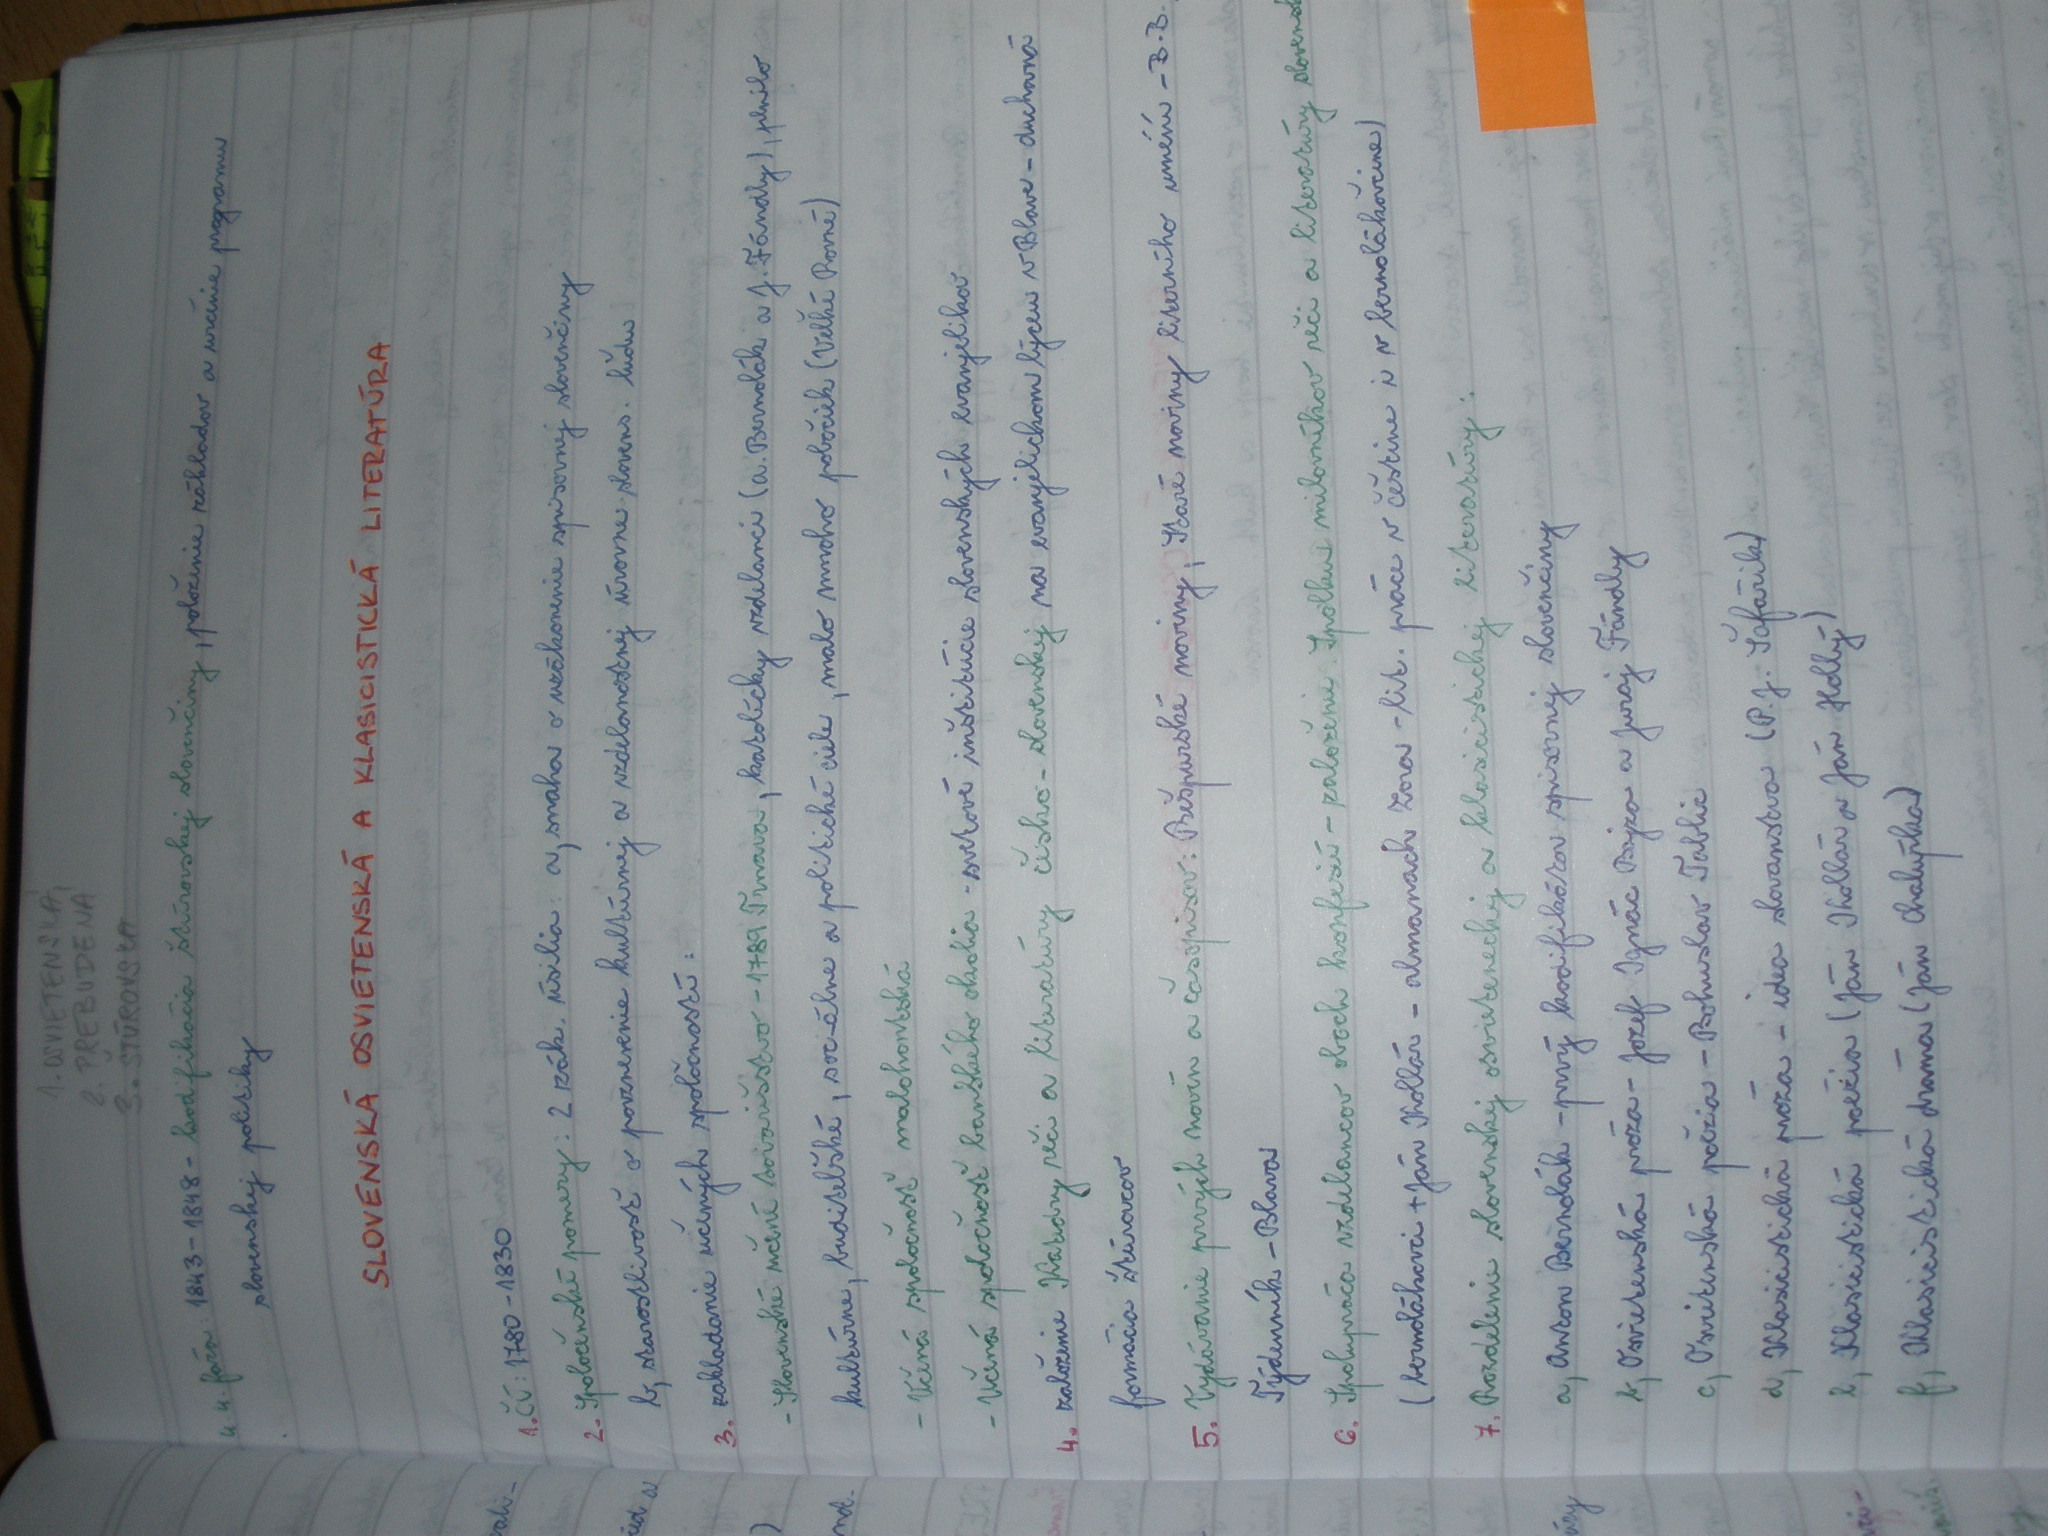 1. OSVIETENSKÁ,
2. PREBUDENÁ
3. ŠTÚROVSKÁ
4. fáza: 1843-1848 - kodifikácia štúrovskej slovenčiny, položenie základov a určenie programu
slovenskej politiky
SLOVENSKÁ OSVIETENSKÁ A KLASICISTICKÁ LITERATÚRA
1. ČÚ: 1780-1830
2. Spoločenské pomery: 2 zák. úsilia: a, snaha o uzákonenie spisovnej slovenčiny
b, starostlivosť o povznesenie kultúrnej a vzdelanostnej úrovne slovens. ľudu
3. zakladanie učených spoločností:
- Slovenské učené tovarišstvo - 1789 Trnava, katolícky vzdelanci (A. Bernolák a J. Fándly), plnilo
kultúrne, buditeľské, sociálne a politické ciele, malo mnoho pobočiek (Veľké Rovné)
- Učená spoločnosť malohontská
- Učená spoločnosť banského okolia - svetové inštitúcie slovenských evanjelikov
4. založenie Katedry reči a literatúry česko-slovenskej na evanjelickom lýceu v Blave - duchovná
formácia štúrovcov
5. Vydávanie prvých novín a časopisov: Prešpurské noviny, Staré noviny literního umění - B.B.,
Týdenník - Blava
6. Spolupráca vzdelancov oboch konfesií - založenie Spolku milovníkov reči a literatúry slovensk
(bernolákovci + Ján Kollár - almanach Zora - lit. práce v češtine i v bernolákovčine)
7. Rozdelenie slovenskej osvieteneckej a klasicistickej literatúry:
a, Anton Bernolák - prvý kodifikátor spisovnej slovenčiny
b, Osvietenská próza - Jozef Ignác Bajza a Juraj Fándly
c, Osvietenská poézia - Bohuslav Tablic
d, Klasicistická próza - idea slovanstva (P. J. Šafárik)
e, Klasicistická poézia (Ján Kollár a Ján Hollý)
f, Klasicistická dráma (Ján Chalupka)